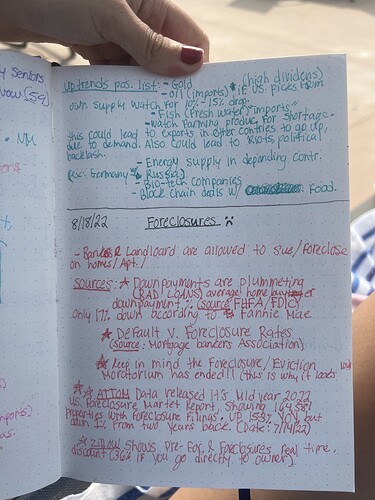 y seniors
now (59)
uptrends pos. list: - Gold (high dividens)
- oil (imports) * if U.S. picks from
own supply watch for 10% - 15% drop.
- Fish (Fresh water) *imports*
- Watch Farming produc, for shortage.
this could lead to exports in other contries to go up,
due to demand. Also could lead to Riots political
backlash.
- Energy supply in depanding contr.
(ex: Germany & Russia)
- Bio-tech companies
- Block chain deals w/ Food.
8/18/22 Foreclosures
- Banks & Landloard are allowed to sue/foreclose
on homes/Apt./
sources: * Downpayments are plummeting
(BAD LOANS) average home buyer
downpayment % (source FHFA/FDIC)
only 17% down according to * Fannie Mae
* Default v. Foreclosure Rates
(source: Mortgage bankers Association)
* Keep in mind the Foreclosure/Eviction
Moratorium has ended!! (this is why it looks
** ATTOM Data released it's Mid year 2022
U.S. Foreclosure Market Report, Showing 164,581
Properties with foreclosure filings. (Up 153% YOY but
down 1% from two years back. (Date: 7/14/22)
* Zillow Shows Pre-For. & Foreclosures real time.
discount (36% if you go directly to owner).